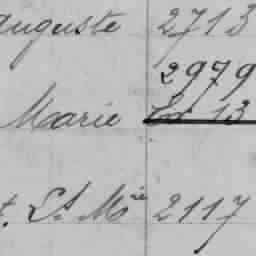 auguste 2713
2979
Marie 13
t. St Mie 2117